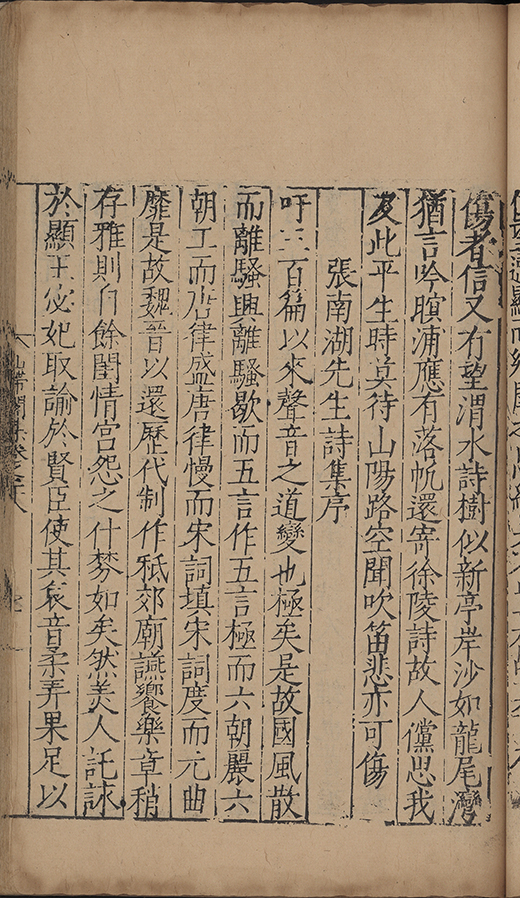 傷者信又有望渭水詩樹似新亭岸沙如龍尾灣
猶言吟暝浦應有落帆還寄徐陵詩故人儻思我
及此平生時莫待山陽路空聞吹笛悲亦可傷
張南湖先生詩集序
吁三百篇以來聲音之道變也極矣是故國風散
而離騷興離騷歇而五言作五言極而六朝麗六
朝工而唐律盛唐律慢而宋詞填宋詞度而元曲
靡是故魏晉以還歷代制作秖郊廟讌饗樂章稍
存雅則自餘閨情宮怨之什棼如矣然美人託詠
於顯王宓妃取諭於賢臣使其哀音柔弄果足以